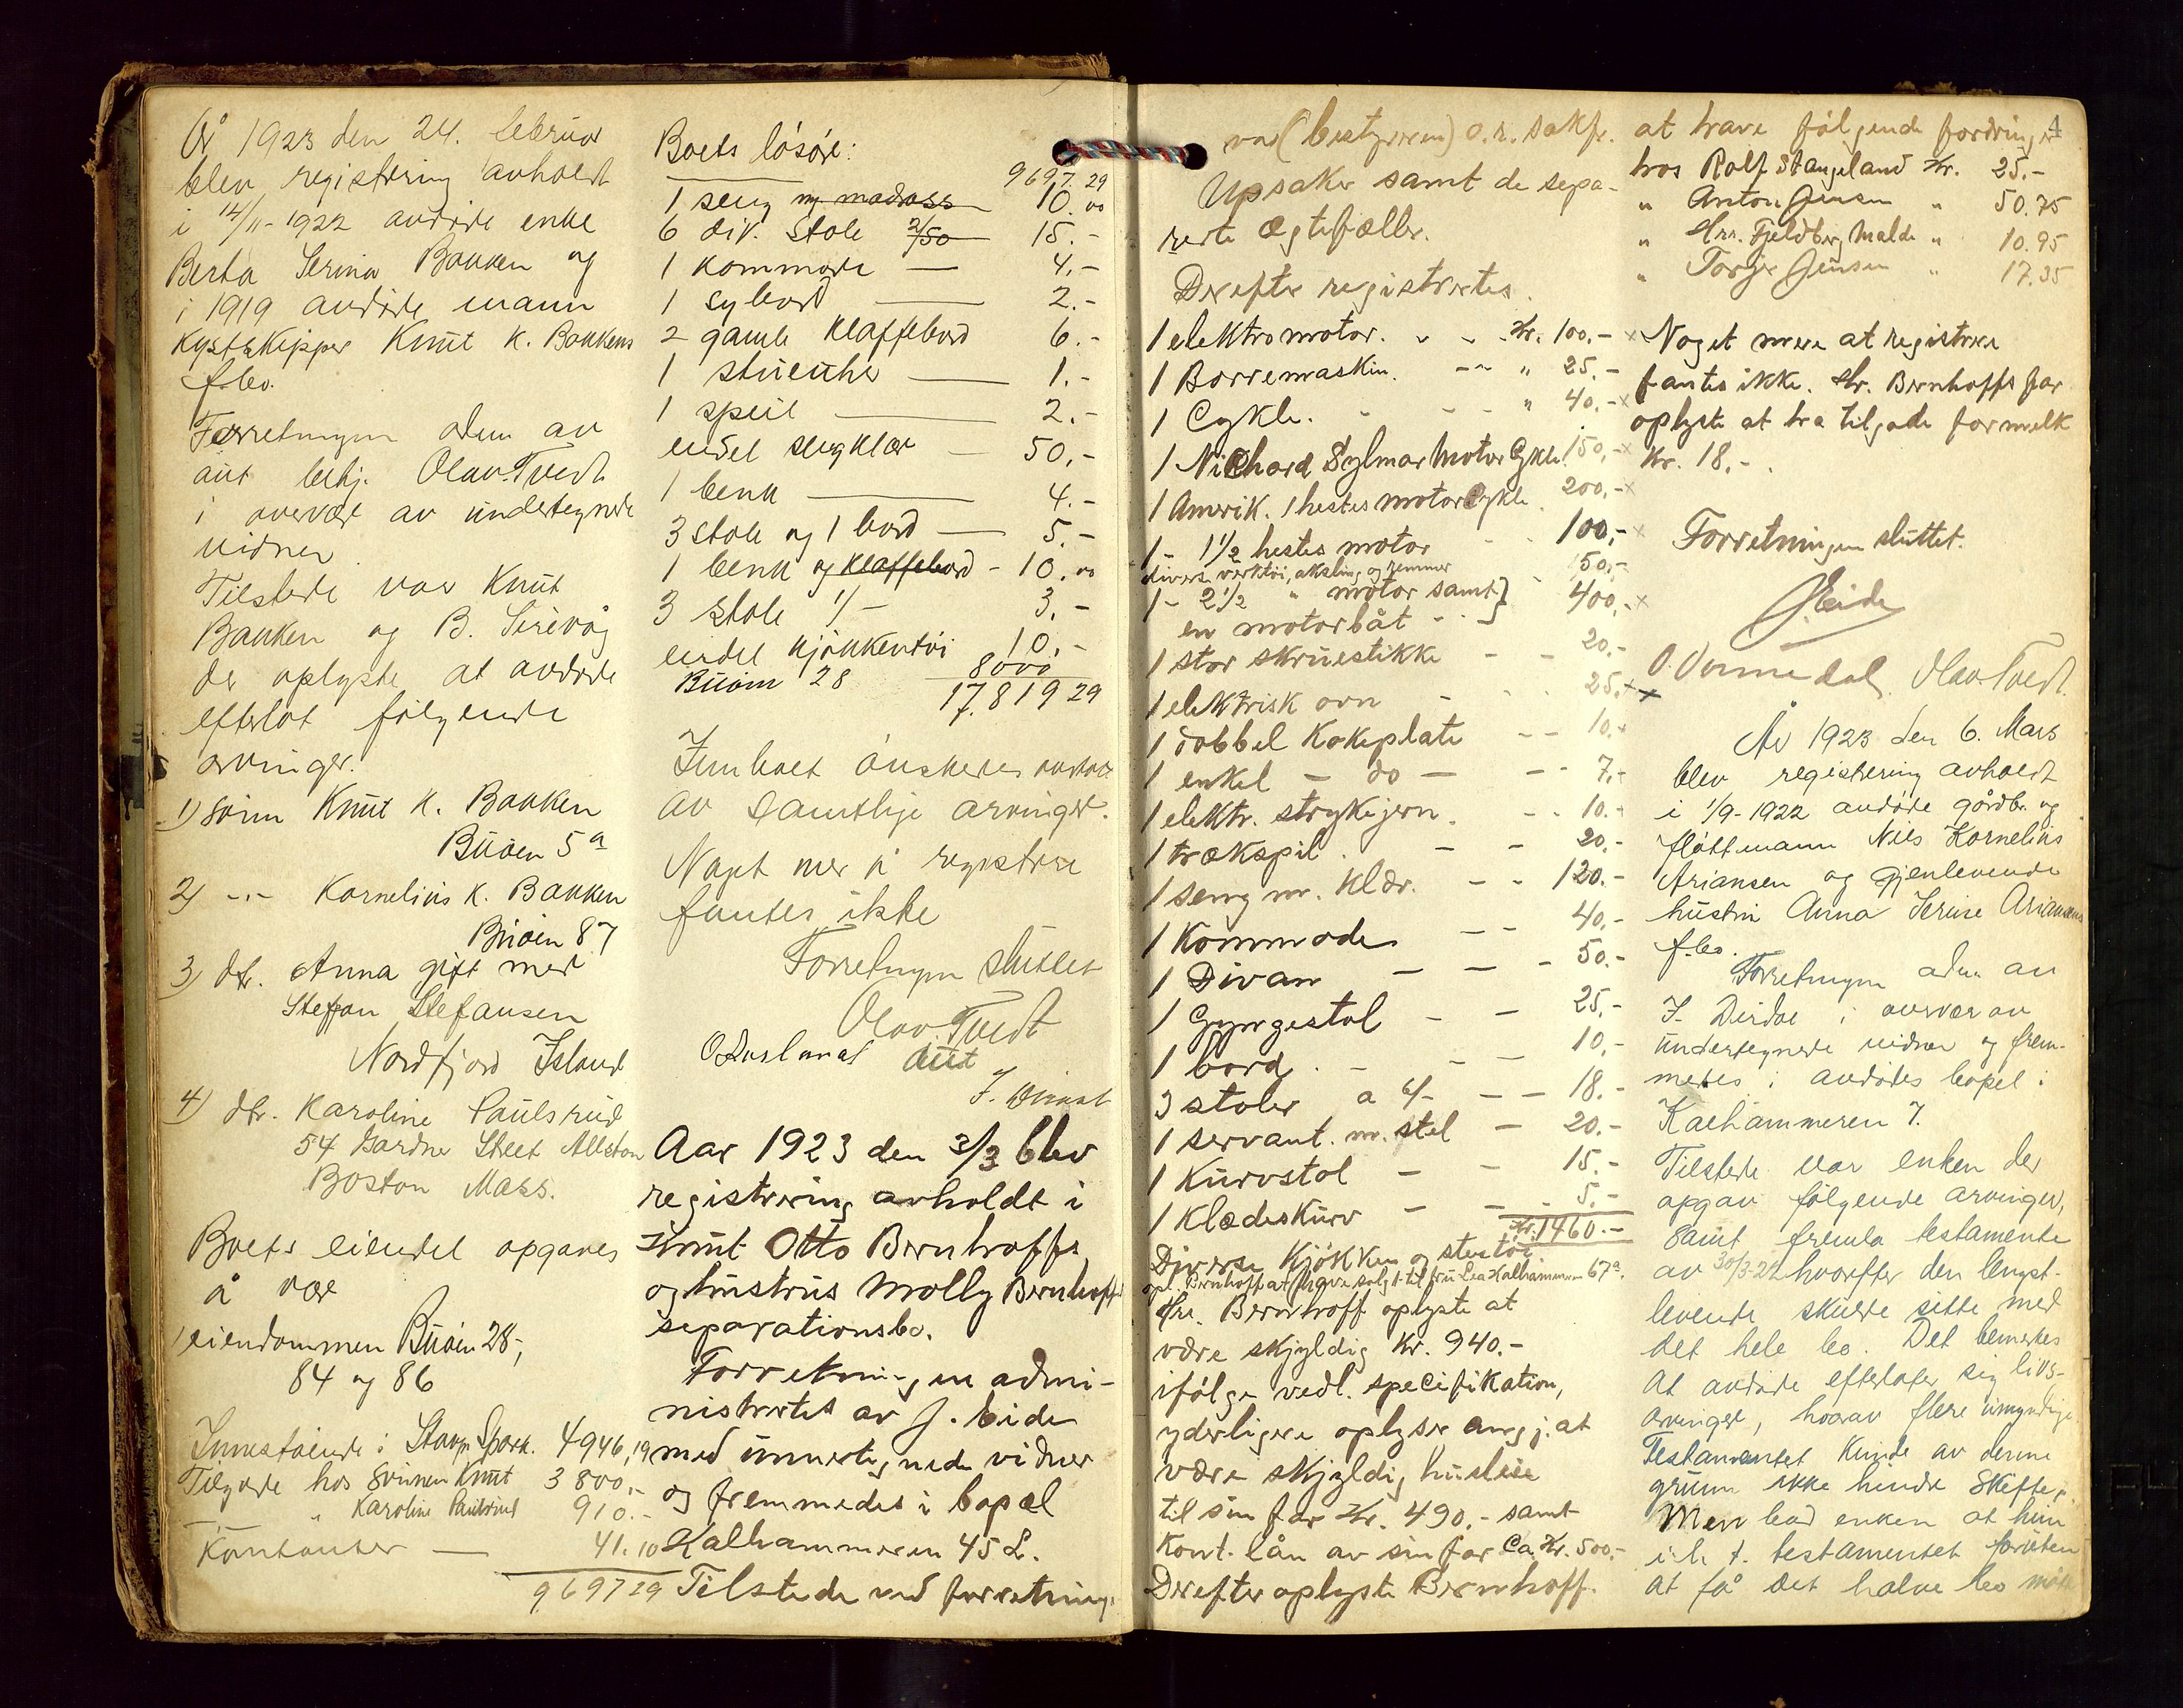 År 1923 den 24. februar
blev registrering avholdt
i 14/11-1922 avdøde enke
Berta Serina Bakken og
i 1919 avdøde mann
kystskipper Knut K. Bakkens
f.bo.
Forretningen adm av
aut
Olav Tvedt
i overvær av undertegnede
vidner
Tilstede var Knut
Bakken og B. Sirevåg
der oplyste at avdøde
efterlot følgende
arvinger.
1) sønn Knut K. Bakken
Buøen 5a
2) -"- Kornelius K. Bakken
Buøen 87
3) dtr. Anna gift med
Steffan Stefansen
Nordfjord Island
4) dtr. Karoline Paulsrud
54 Gardner Street Allston
Boston Mass.
Boets eiendel opgaves
å være
eiendommen Buøen 28,
84 og 86
Innestående i Stavgr. Spark. 4946,19
Tilgode hos sønnen Knut 3800,-
" Karoline Paulsrud 910.-
Kontanter — 41.10
9697 29
Boets løsøre:
9697. 29
1 seng m madrass 10.00
6 div. stole 2/50 15.-
1 kommode — 4.-
1 sybord — 2.-
2 gamle klaffebord 6.-
1 stueuhr — 1.-
1 speil — 2.-
endel sengklær — 50.-
1 benk — 4.-
3 stole og 1 bord — 5.-
1 benk og klaffebord - 10.00
3 stole 1/- 3.-
endel kjøkkentøi 10.-
Buøen 28 8000
17.819 29
av samtlige arvinger.
Noget mer å registrere
fantes ikke
Forretningen sluttet
Olav Tvedt
aut
Aar 1923 den 3/3 blev
registrering avholdt i
Knut Otto Bernhoffs
og hustrus Molly Bernhoffs
separationsbo.
Forretningen admi-
nistrertes av J. Eide
med undertegnede vidner
og fremmedes i bopæl
Kalhammeren 45 L.
Tilstede ved forretning.
var (bestyreren) o.r. sakfr.
Upsaker samt de sepa-
rerte Ægtefæller.
Derefter registrertes.
1 elektromotor. - - Kr. 100.- x
1 Borremaskin. - - " 25.-
1 Cykle. - - " 40.- x
1 Nichard Sylmar Motor Cykle 150.- x
1 Amerik. 1 hestes motorcykle 200.- x
1 - 1½ hestes motor - - 100,- x
divers verktøi, aksling og remmer 50,-
1 - 2½ " motor samt } 400.- x
en motorbåt - -
1 stor skruestikke - - 20.-
1 elektrisk ovn - - 25.- x
1 dobbel Kokeplate - - 10.-
1 enkel - do - - - 7.-
1 elektr. strykejern. - - 10.-
1 trækspil. - - 20.-
1 seng m. klær. - - 120.-
1 Kommode - - 40.-
1 Divan - - - 50.-
1 Gyngestol - - 25.-
1 bord. - - - 10.-
3 stoler a 6/- - - 18.-
1 servant. m. stel - 20.-
1 Kurvstol - - 15.-
1 Klædeskurv - - 5.-
Kr. 1460.-
Diverse Kjøkken og stentøi
opl. Bernhoff at have solgt til fru Lea Kalhammeren 67a.
Hr. Bernhoff oplyste at
være skyldig Kr. 940.-
ifølge vedl. specifikation,
yderligere oplyser angj. at
være skyldig husleie
til sin far Kr. 490.- samt
Kont. lån av sin far Ca. Kr. 500.-
Derefter oplyste Bernhoff.
4
at have følgende fordringer
hos Rolf Stangeland Kr. 25.-
" Anton Jensen " 50.75
" Hrr. Fjeldberg Malde " 10.95
" Torger Jensen " 17.35
Noget mere at registrere
fantes ikke. Hr. Bernhoffs far
oplyste at ha tilgode for melk
Kr. 18.-.
Forretningen sluttet.
J Eide
Olav Tvedt.
År 1923 den 6. Mars
blev registrering avholdt
i 1/9-1922 avdøde gårdbr. og
fløttmann Nils Kornelius
Ariansen og gjenlevende
hustru Anna Serine Ariansens
f.bo.
Forretningen adm av
i overvær av
undertegnede vidner og frem-
medes i avdødes bopel i
Kalhammeren 7.
Tilstede var enken der
opgav følgende arvinger,
samt fremla testamente
av 30/3-22 hvorefter den lengst-
levende skulde sitte med
det hele bo. Det bemerkes
at avdøde efterlater sig livs-
arvinger, hvorav flere umyndige.
Testamentet kunde av denne
grunn ikke hindre skifte,
Men bad enken at hun
i h. t. testamentet foruten
at få det halve bo måtte